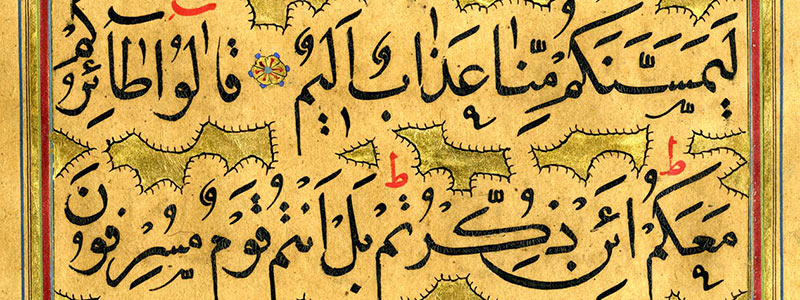 لَيَمَسَّنَّكُمْ مِنَّا عَذَابٌ أَلِيمٌ قَالُوا طَائِرُكُمْ
مَعَكُمْ ط أَئِنْ ذُكِّرْتُمْ ط بَلْ أَنْتُمْ قَوْمٌ مُسْرِفُونَ